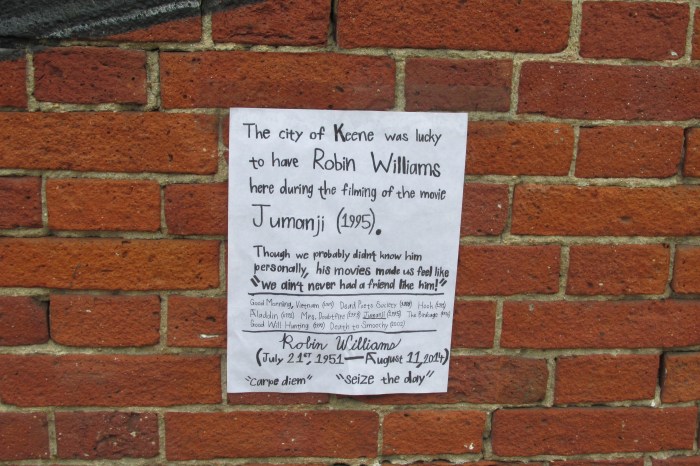 The city of Keene was lucky
to have Robin Williams
here during the filming of the movie
Jumanji (1995).
Though we probably didnt know him
personally, his movies made us feel like
"we ain't never had a friend like him!"
Good Morning, Vietnam (1987) Dead Poets Society (1989) Hook (1991)
Aladdin (1992) Mrs. Doubtfire (1993) Jumanji (1995) The Birdcage (1996)
Good Will Hunting (1997) Death to Smoochy (2002)
Robin Williams
(July 21st, 1951—August 11, 2014)
"carpe diem" "seize the day"